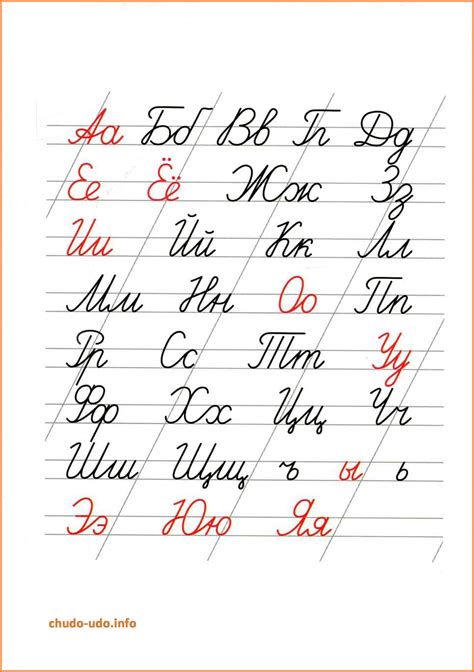 Аа Бб Вв Гг Дд
Ее Ёё Жж Зз
Ии Йй Кк Лл
Мм Нн Оо Пп
Рр Сс Тт Уу
Фф Хх Цц Чч
Шш Щщ ъ ы ь
Ээ Юю Яя
chudo-udo.info